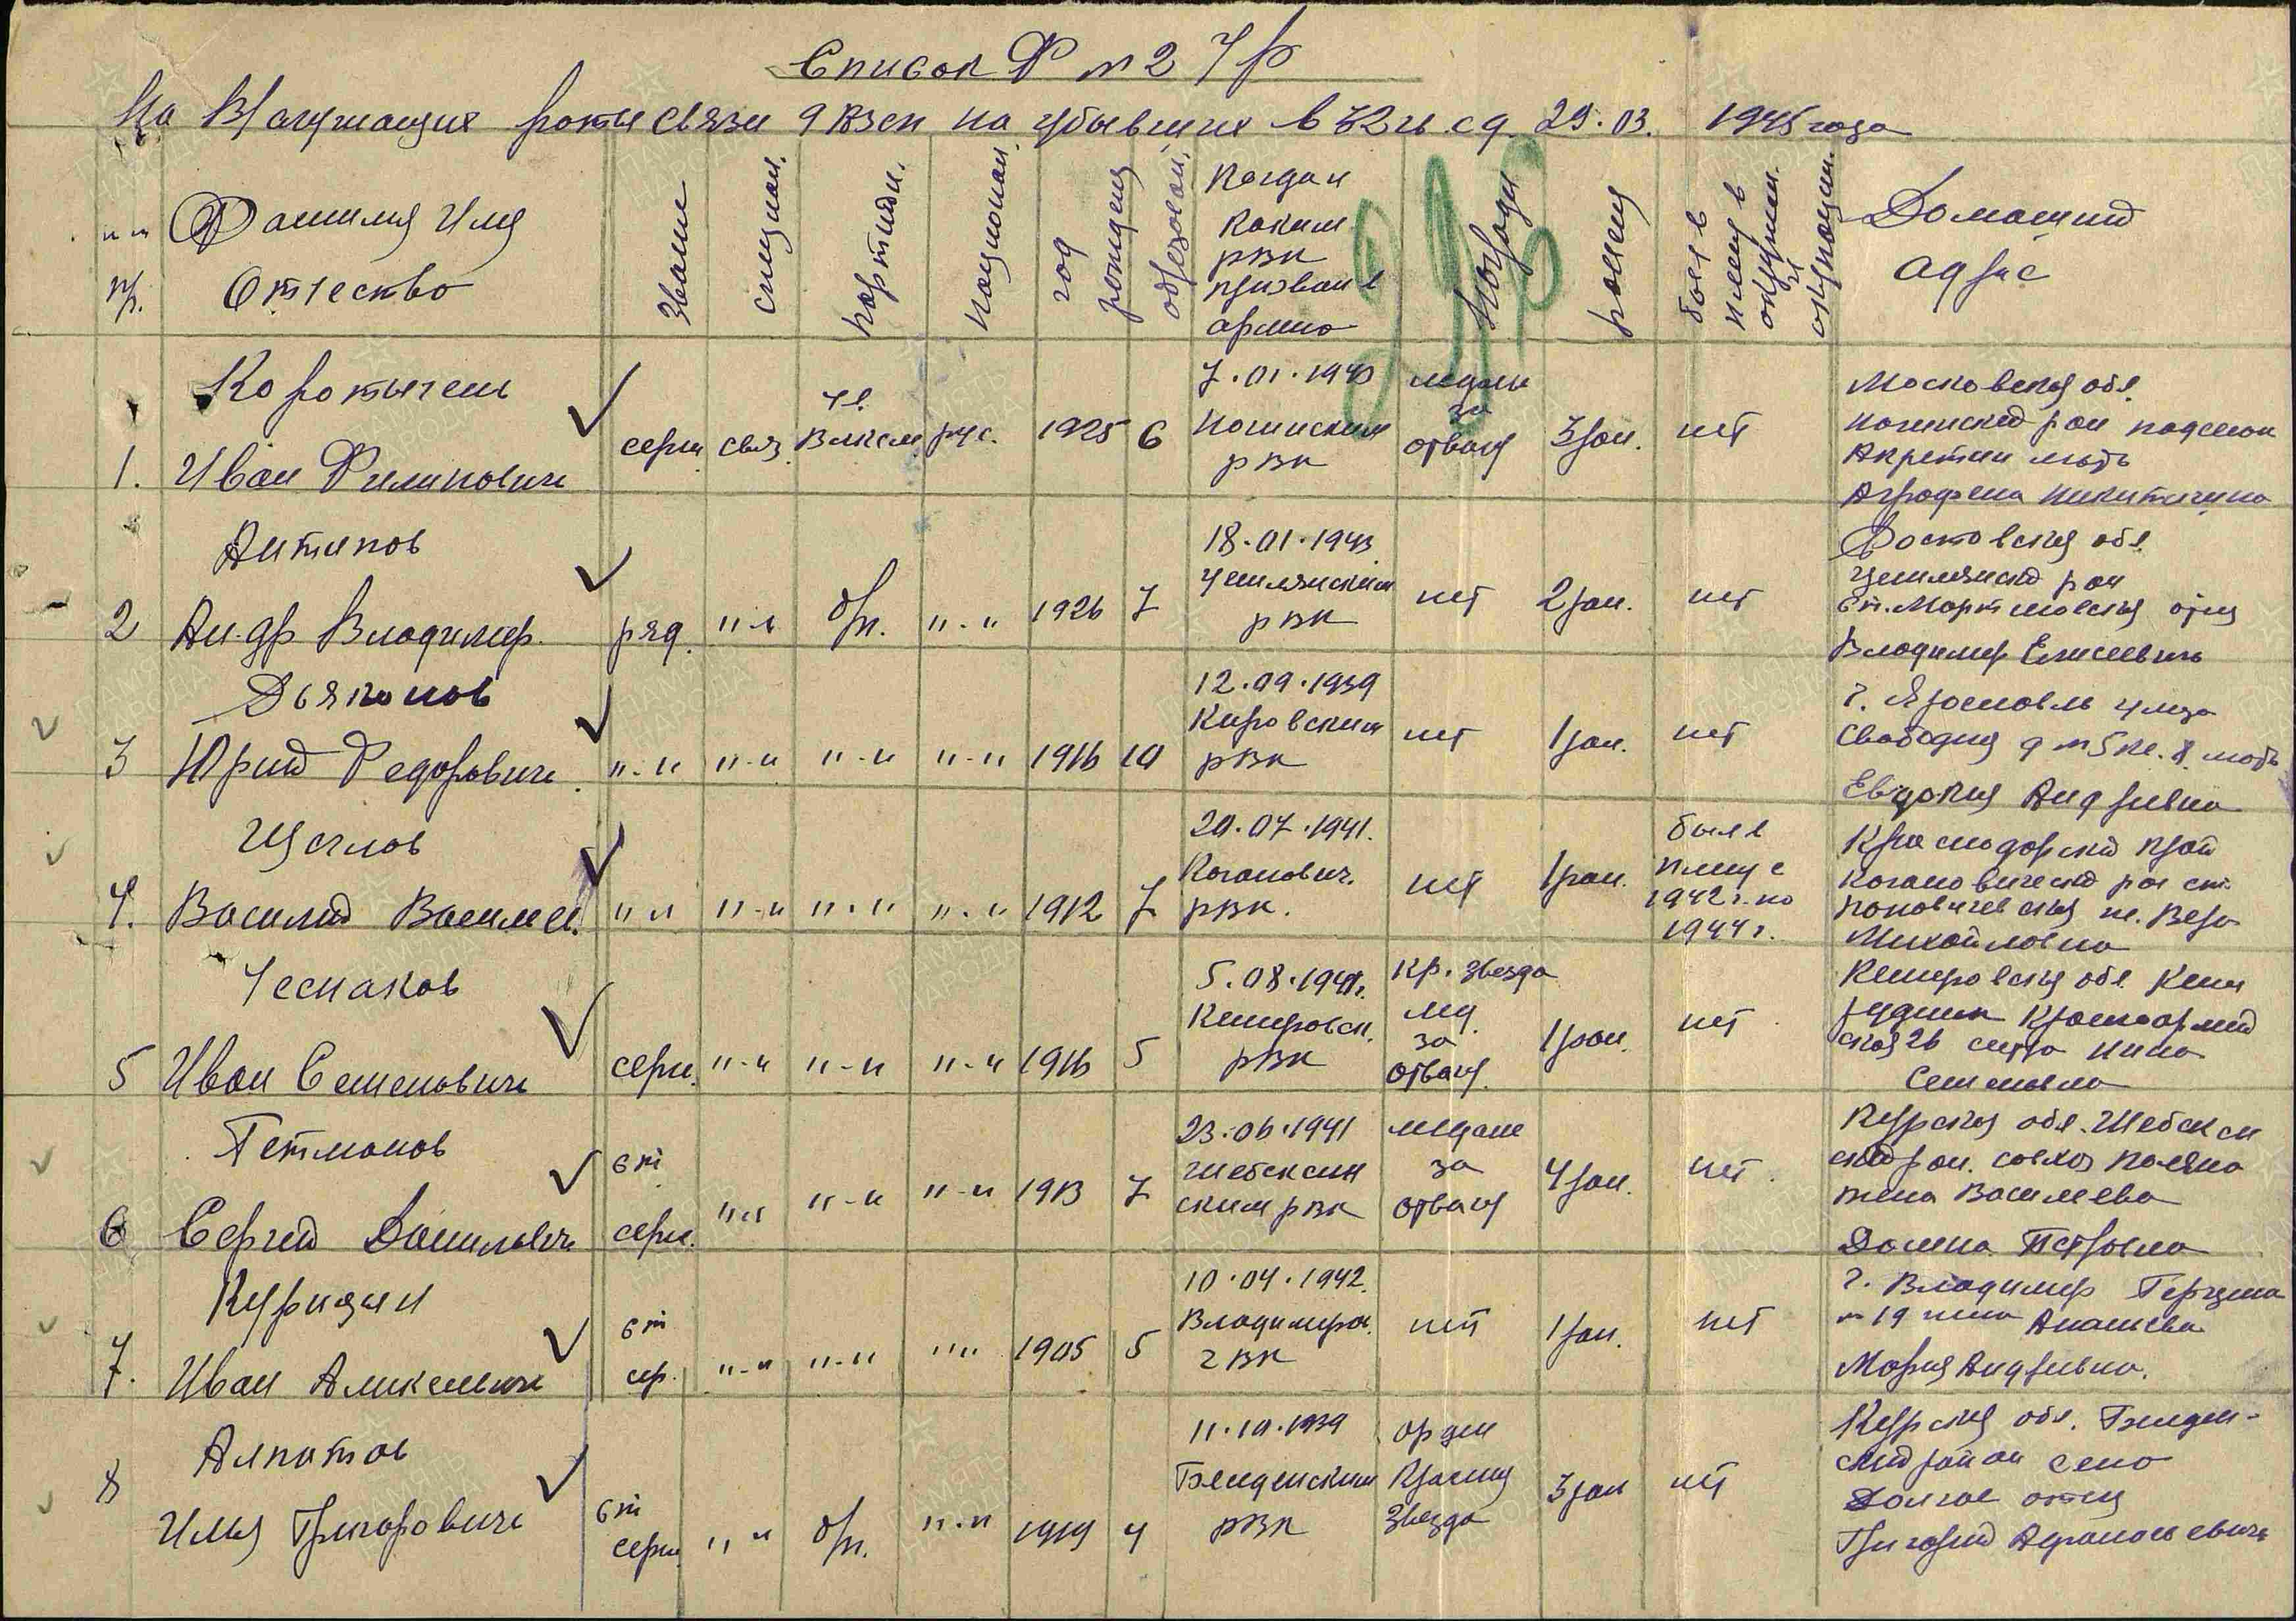 Список Ф № 2 Ур
На В/служащих роты связи 9 взсп на убывших в 72 гв. сд. 29.03. 1945 года
пп
Фамилия Имя
Отчество
Звание
специал.
партийн.
национал.
год рождения
образован.
Когда и
каким
рвк
призван в
армию
Награды
ранен
был в
плену в
окружен.
и
оккупации
Домашний
адрес
Коротычень
1. Иван Филипович
серж. связ. чл. Влксм рус. 1925 6
7.01.1943
Ногинским
рвк
медаль
за
отвагу
3 ран.
нет
Московская обл.
Ногинский рон
мать
Аграфена Никитична
Антипов
2 Андр Владимир.
ряд. "-" б/п. "-" 1926 7
18.01.1943
Цимлянским
рвк
нет
2 ран.
нет
Ростовская обл.
Цимлянский рон
ст. Мартыновская отец
Владимир Елисеевич
Дьяконов
3 Юрий Федорович
"-" "-" "-" "-" 1916 10
12.09.1939
Кировским
рвк
нет
1 ран.
нет
г. Ярославль улица
Свободы д № 5 кв. 8. мать
Евдокия Андреевна
Щеглов
4. Василий Василев.
"-" "-" "-" "-" 1912 7
20.07.1941.
Каганович.
рвк.
нет
1 ран.
был в
плену с
1942 г. по
1944 г.
Краснодарский край
Кагановический рон ст.
Поповичевская ж. Вера
Михайловна
Чеснаков
5 Иван Семенович
серж. "-" "-" "-" 1916 5
5.08.1941г.
Кемеровск.
рвк
Кр. звезда
мед.
за
отвагу.
1 ран.
нет
Кемеровская обл. Кем
рудник Красноармей
ская 26 систра Нина
Семеновна
Гетманов
6 Сергей Данилович
ст.
серж. "-" "-" "-" 1913 7
23.06.1941
Шебекин
ским рвк
медаль
за
отвагу
4 ран.
нет
Курская обл. Шебекин
ский рон. совхоз Поляна
жена Василева
Домна Петровна
Курицын
7. Иван Алексеевич
ст
сер. "-" "-" "-" 1905 5
10.04.1942.
Владимирск.
гвк
нет
1 ран.
нет
г. Владимир Герцена
№ 19 жена
Мария Андреевна.
Алпатов
8 Илья Григорович
ст
серж. "-" б/п. "-" 1919 4
11.10.1939
рвк
орден
Красная
Звезда
3 ран
нет
Курская обл.
ский район село
Долгое отец
Григорий Афанасьевич